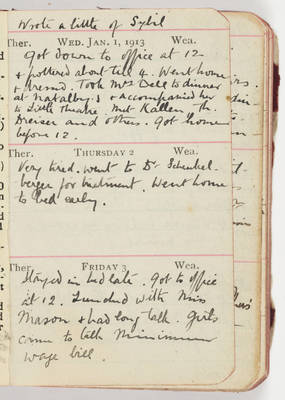 Wrote a little of Sybil
Ther. WED. JAN. 1, 1913 Wea.
Got down to office at 12 -
& pottered about till 4. Went home
& dressed. Took Mrs Dell to dinner
at & accompanied her
to Little Theatre. Met Kallen, Th.
Dreiser and others. Got home
before 12.
Ther. THURSDAY 2 Wea.
Very tired. Went to Dr
berger for treatment. Went home
to bed early.
Ther. FRIDAY 3 Wea.
Stayed in bed late. Got to office
at 12. Lunched with Miss
Mason & had long talk. Girls
came to talk Minimum
wage bill.